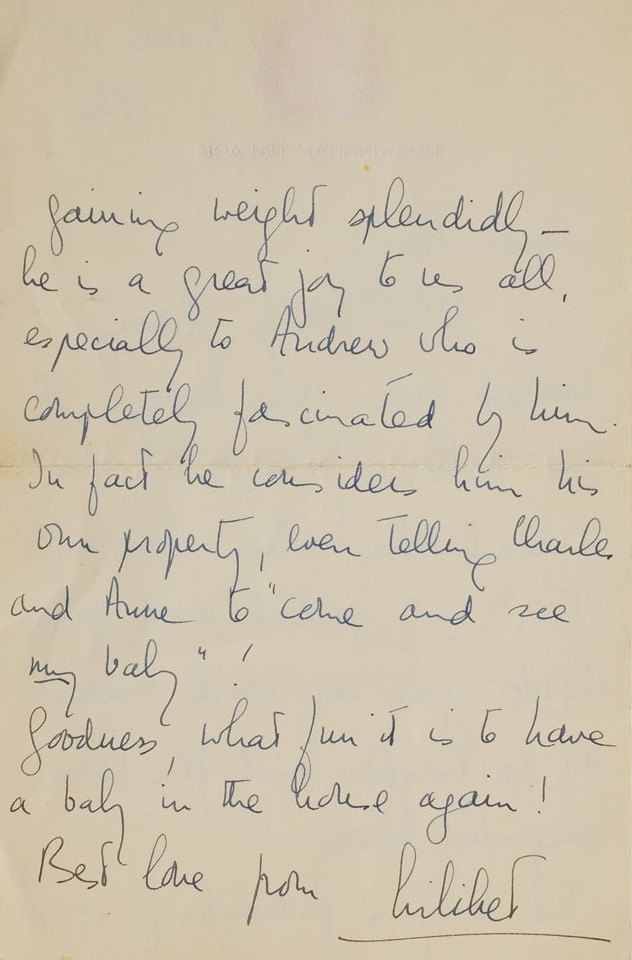 gaining weight splendidly —
he is a great joy to us all,
especially to Andrew who is
completely fascinated by him.
In fact he considers him his
own property, even telling Charles
and Anne to "come and see
my baby"!
Goodness, what fun it is to have
a baby in the house again!
Best love from Lilibet